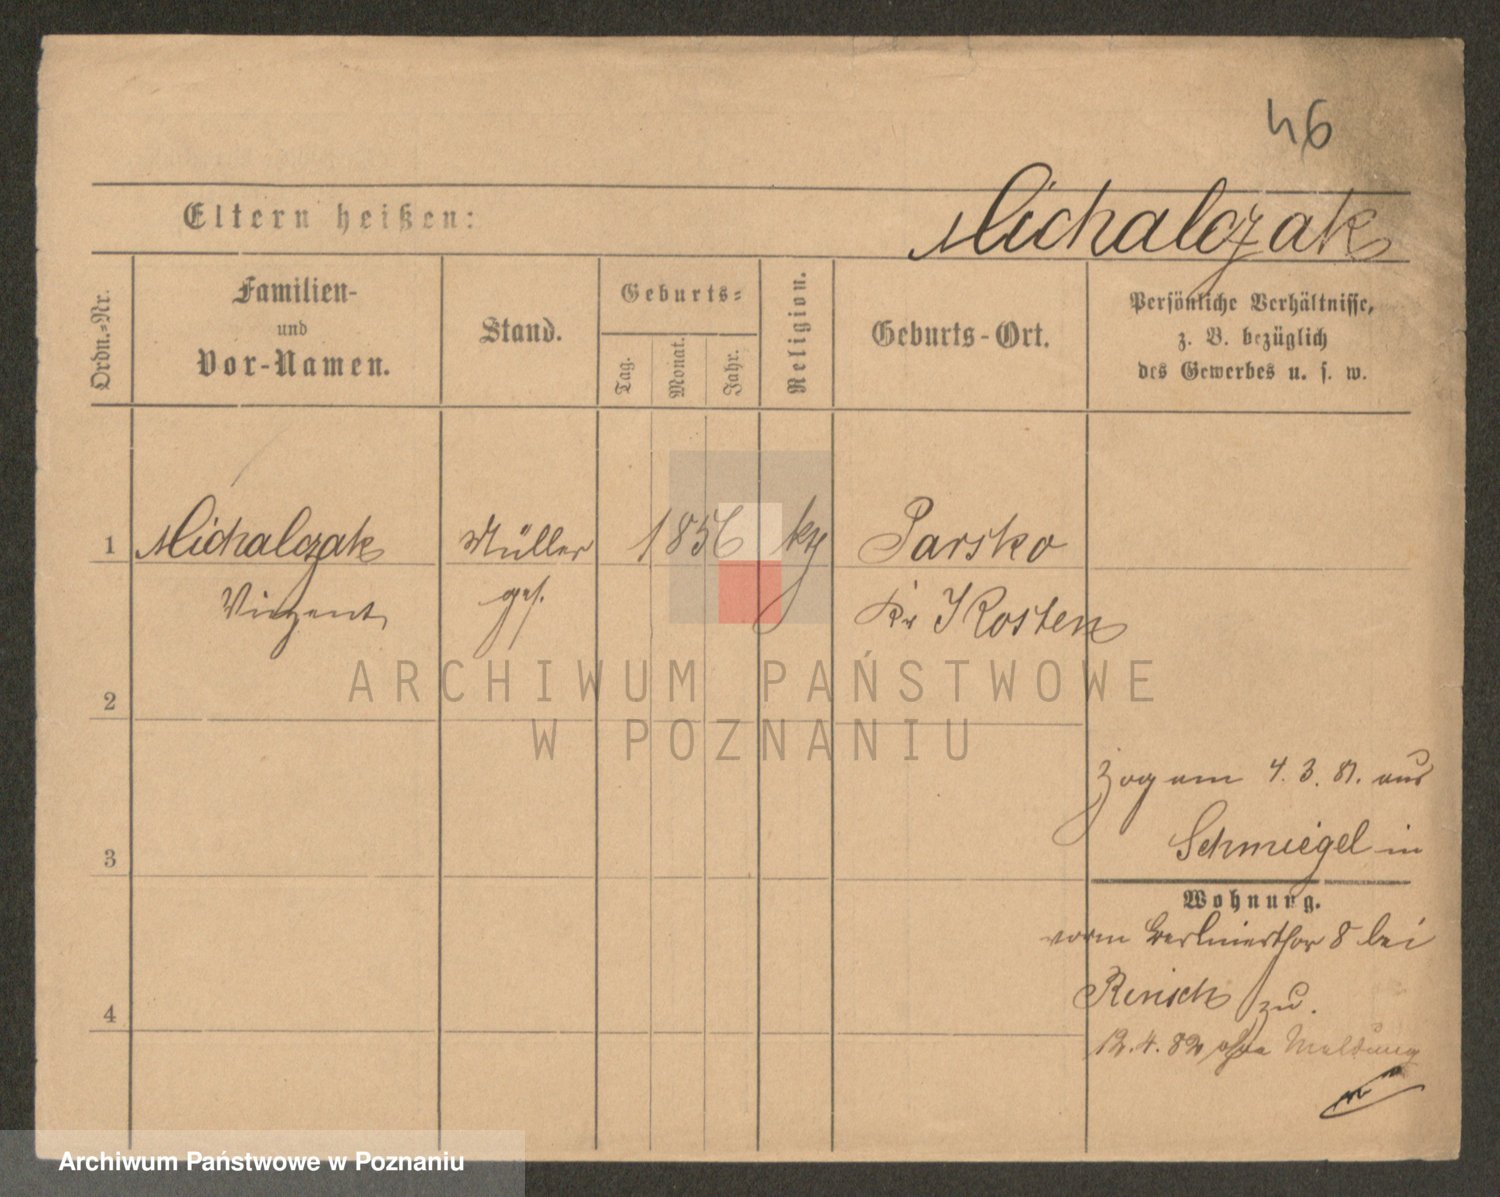 46
Eltern heißen:
Michalczak
Ordn.-Nr.
Familien-
und
Vor-Namen.
Stand.
Geburts-
Tag.
Monat.
Jahr.
Religion.
Geburts-Ort.
Persönliche Verhältnisse,
z. B. bezüglich
des Gewerbes u. s. w.
1 Michalczak Müller 1856 Parsko
Vinzent ges. Kr Kosten
ARCHIWUM PAŃSTWOWE
W POZNANIU
2
zog am 4. 3. 81. aus
Schmiegel in
3
Wohnung.
vorm Berlinerthor 8 bei
Rinsch zu.
4
12. 4. 82 ohne Meldung
Archiwum Państwowe w Poznaniu